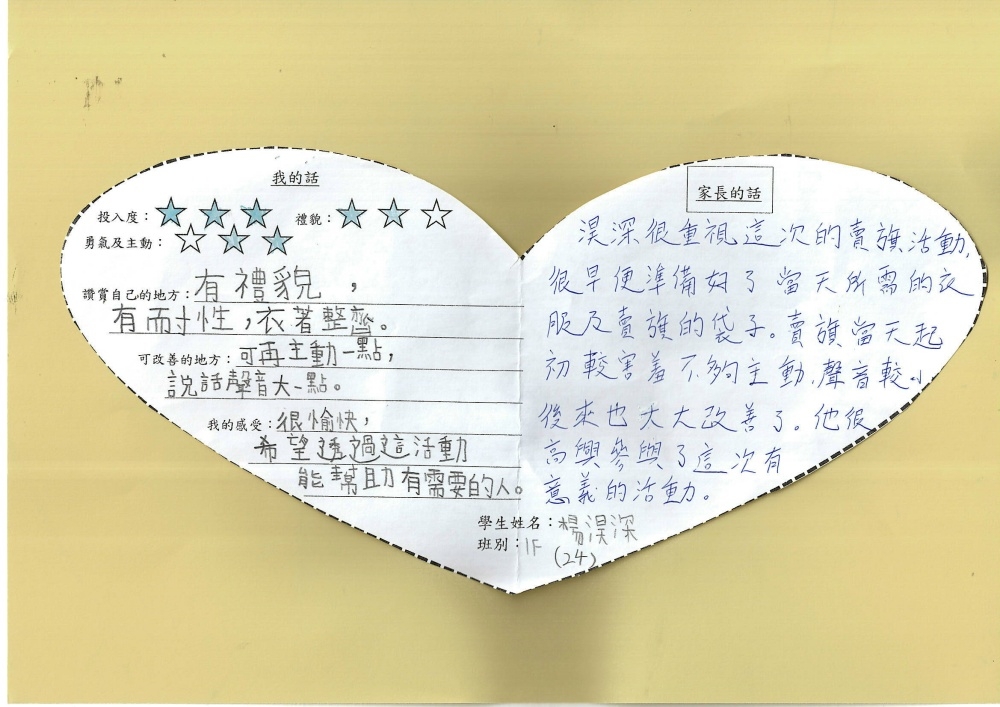 我的話
投入度：★★★ 禮貌：★★☆
勇氣及主動：☆★★
讚賞自己的地方：有禮貌，
有耐性，衣著整齊。
可改善的地方：可再主動一點，
說話聲音大一點。
我的感受：很愉快，
希望透過這活動
能幫助有需要的人。
家長的話
淏深很重視這次的賣旗活動，
很早便準備好了當天所需的衣
服及賣旗的袋子。賣旗當天起
初較害羞不夠主動，聲音較小
後來也大大改善了。他很
高興參與了這次有
意義的活動。
學生姓名：楊淏深
班別：1F
(24)